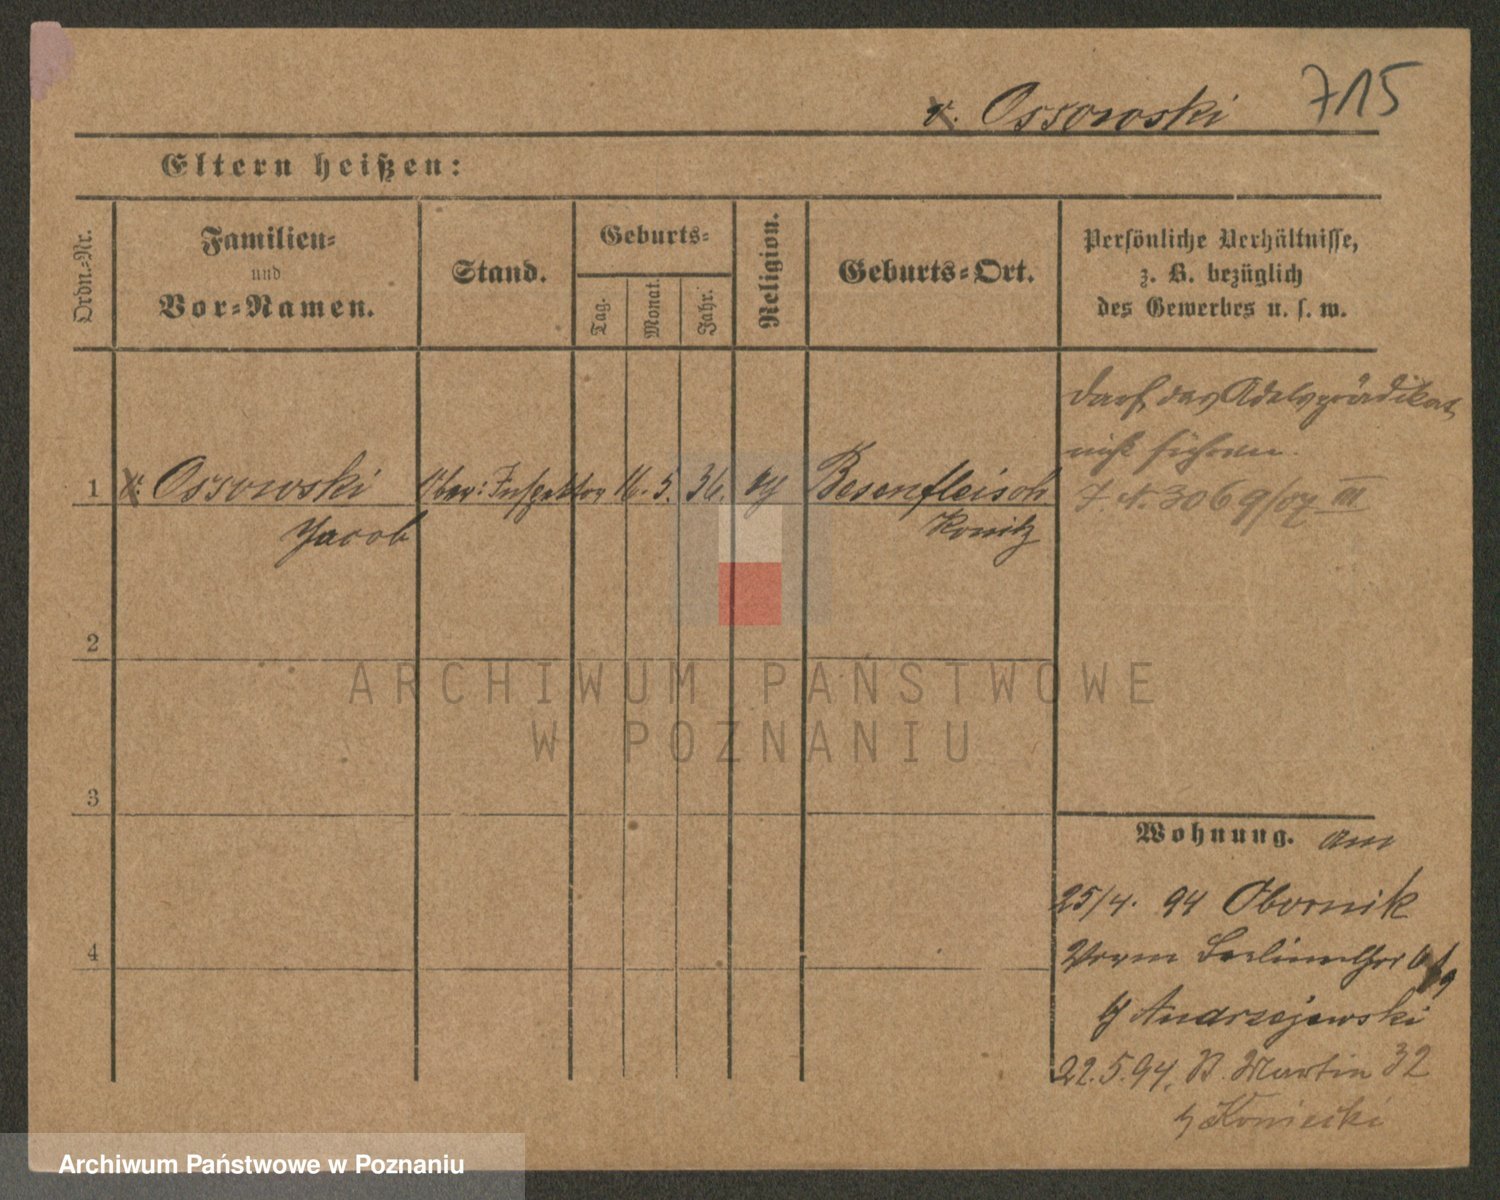 v. Ossowski 715
Eltern heißen:
Ordn.-Nr.
Familien-
und
Vor-Namen.
Stand.
Geburts-
Tag.
Monat.
Jahr.
Religion.
Geburts-Ort.
Persönliche Verhältnisse,
z. B. bezüglich
des Gewerbes u. s. w.
darf das Adelsprädikat
nicht führen.
J. N. 3069/07 III
1 v. Ossowski Ober: Inspektor 16. 5. 36. Besenfleisch
Jacob Konitz
2
3
4
Wohnung. am
25/4. 94 Obornik
Vorm Berlinerthor
b/ Andrzejewski
22.5.94. St. Martin 32
b/ Koniecki
ARCHIWUM PAŃSTWOWE
W POZNANIU
Archiwum Państwowe w Poznaniu